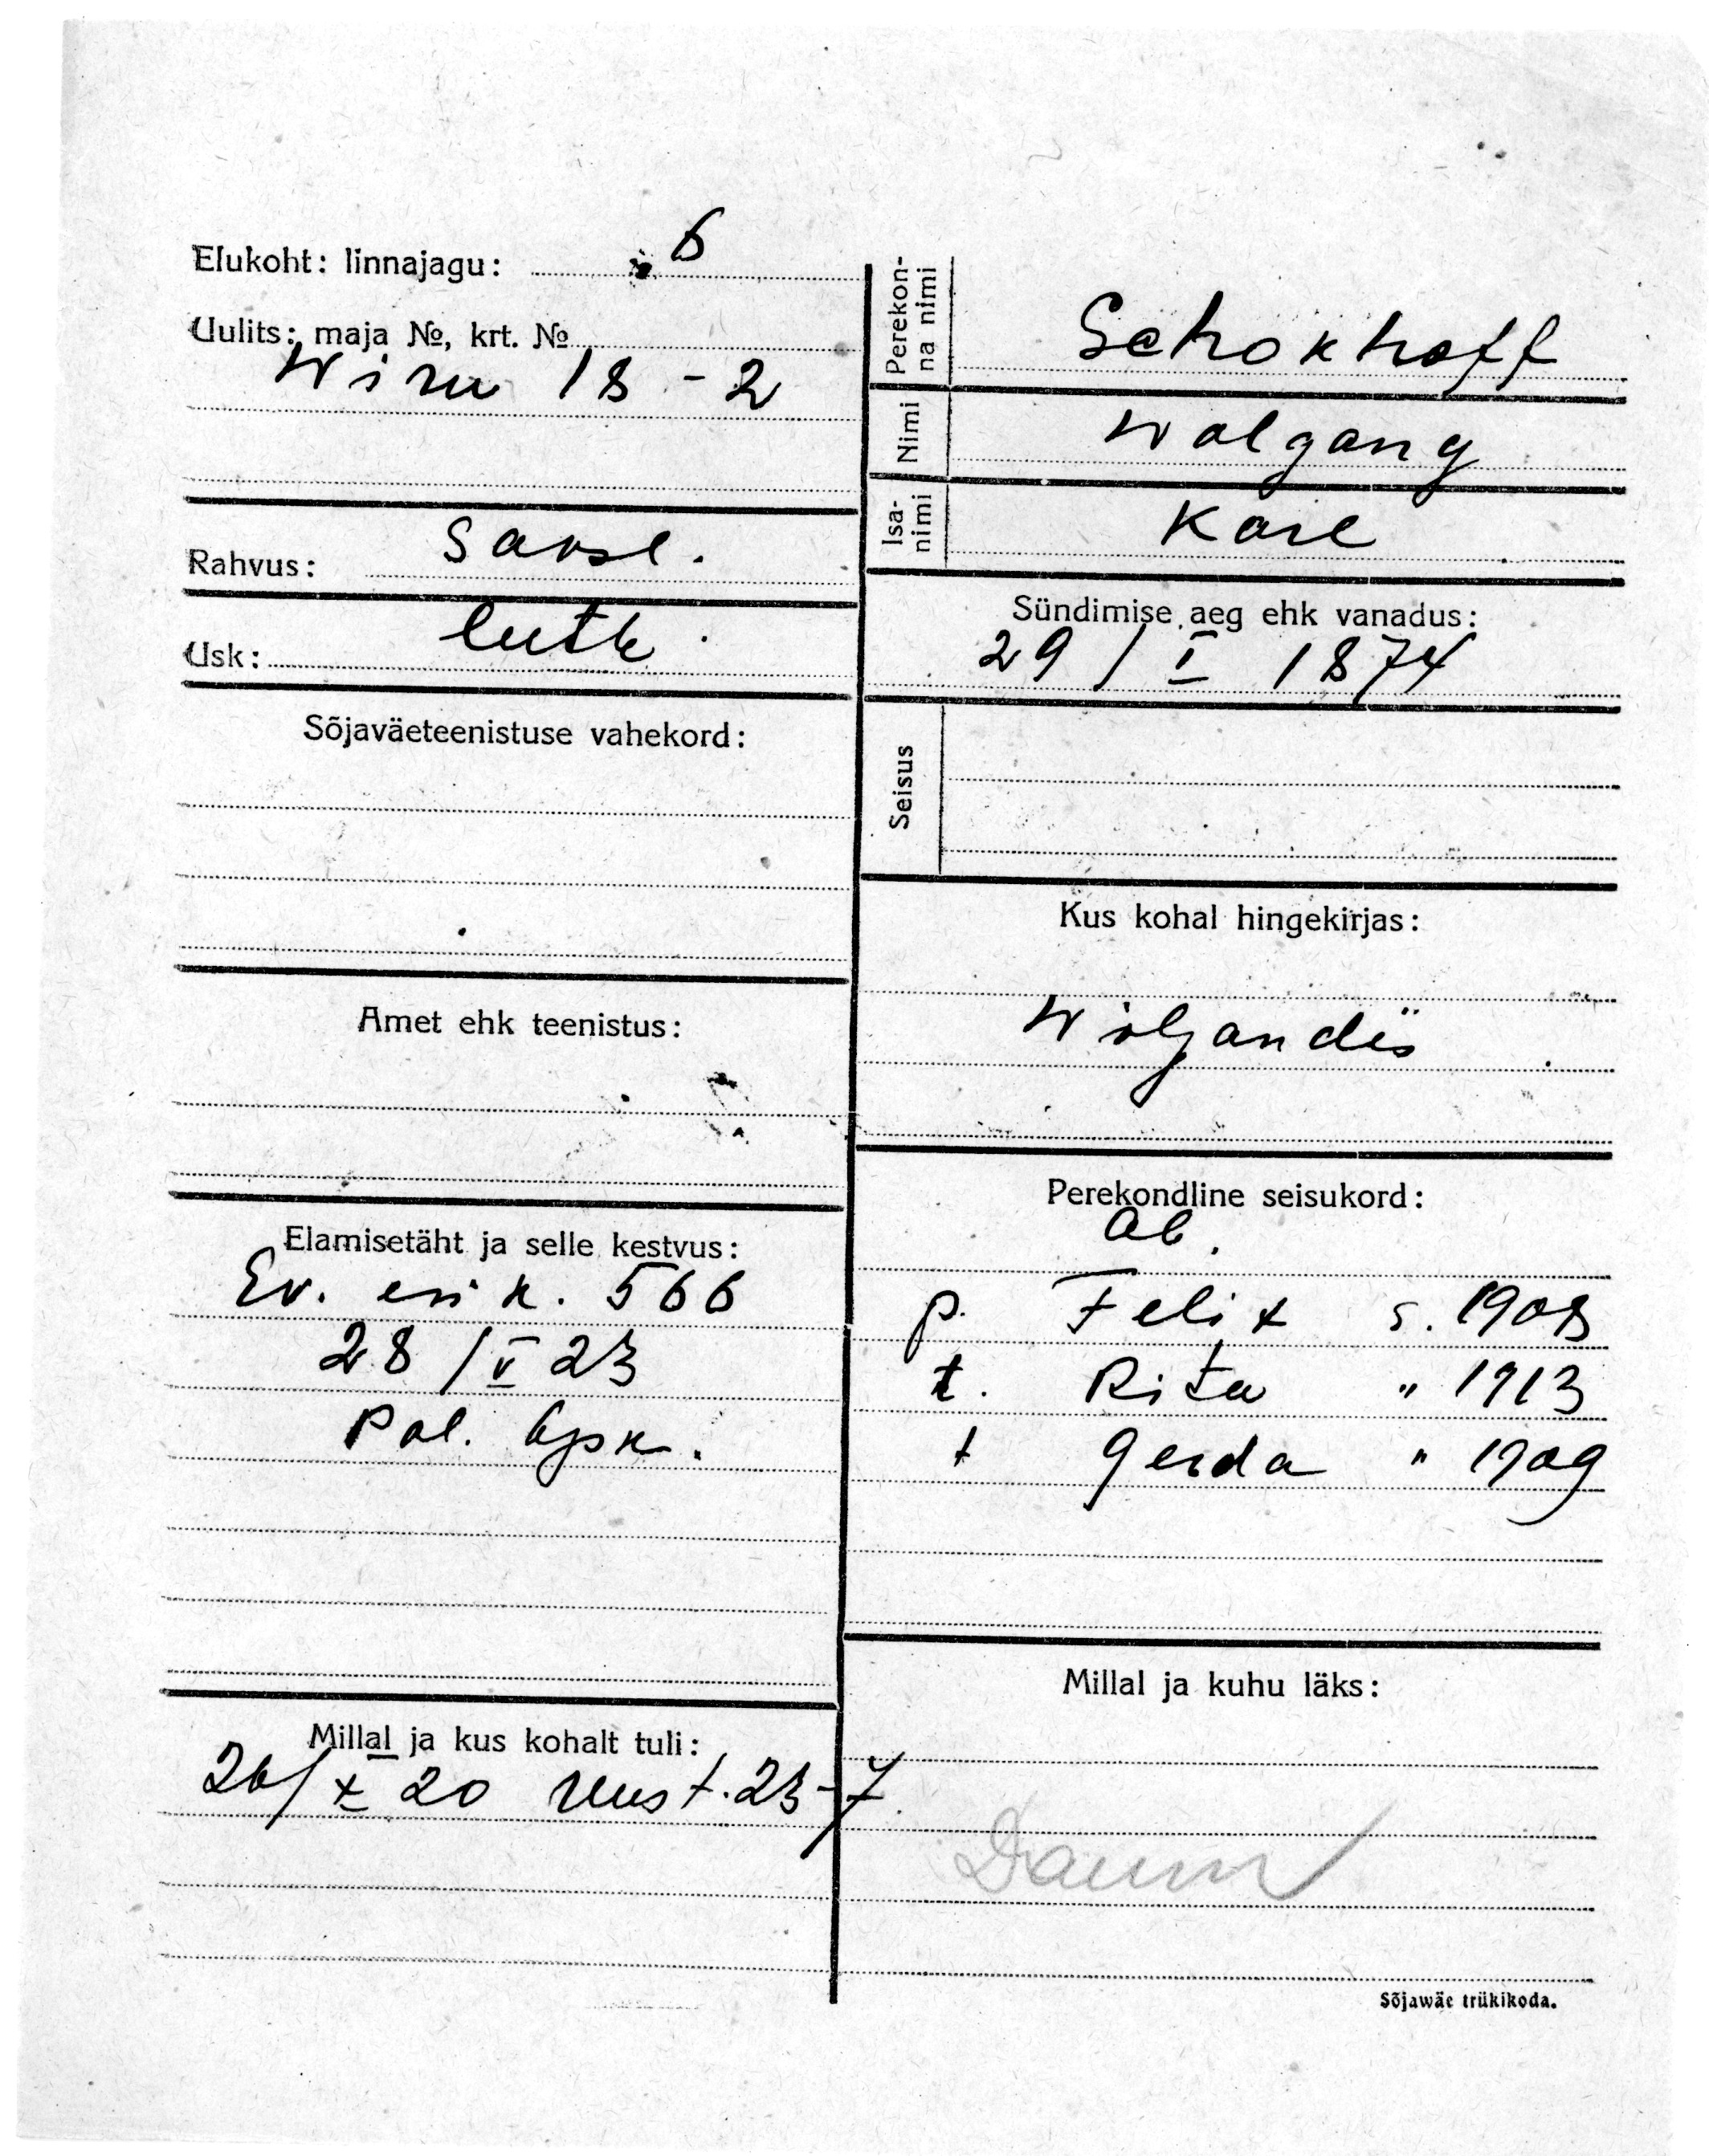 Elukoht: linnajagu: 6
Uulits: maja №, krt. №
Wiru 18 - 2
Rahvus: Saksl.
Usk: luth.
Sõjaväeteenistuse vahekord:
Amet ehk teenistus:
Elamisetäht ja selle kestvus:
Ev. eri k. 566
28/V 23
Pol. 6 jsk.
Millal ja kus kohalt tuli:
26/X 20 Uus t. 23-7
Perekonna nimi
Schokhoff
Nimi
Wolgang
Isanimi
Karl
Sündimise aeg ehk vanadus:
29/I 1874
Seisus
Kus kohal hingekirjas:
Wiljandis
Perekondline seisukord:
Ab.
p. Felix s. 1908
t. Rita " 1913
t Gerda " 1909
Millal ja kuhu läks:
Sõjawäe trükikoda.